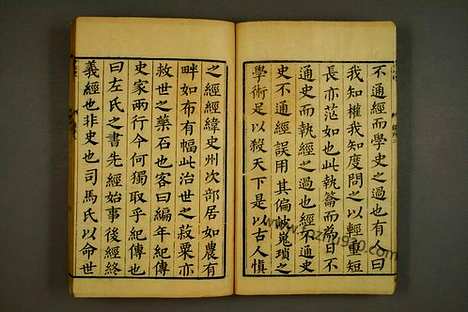 不通經而學史之過也有人曰
我知權我知度問之以輕重短
長亦茫如也此執籥而為日不
通史而執經之過也經不通史
史不通經誤用其偏岐嵬瑣之
學術足以殺天下是以古人慎
之經經緯史州次部居如農有
畔如布有幅此治世之菽粟亦
救世之藥石也客曰編年紀傳
史家兩行今何獨取乎紀傳也
曰左氏之書先經始事後經終
義經也非史也司馬氏以命世